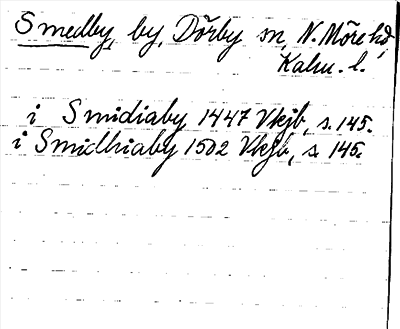 Smedby, by, Dörby sn, N. Möre hd,
Kalm. l.
i Smidiaby 1447 Vkjb, s. 145.
i Smidhiaby 1502 Vkjb, s. 145.